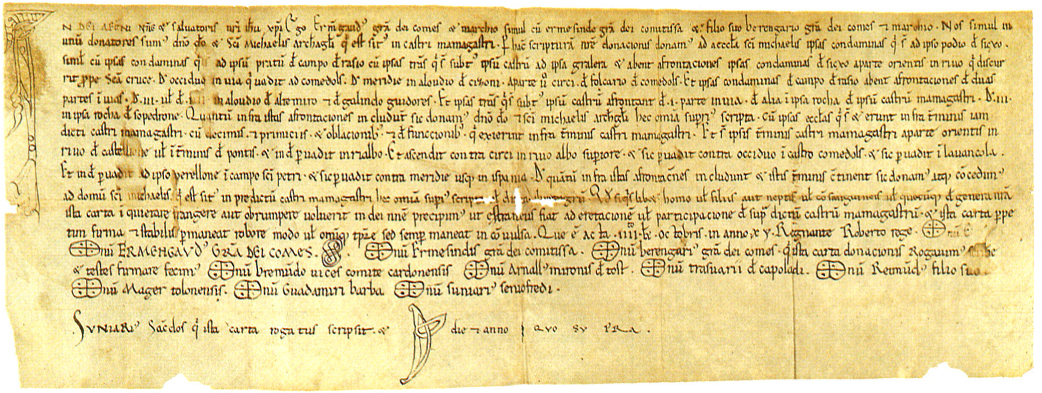 N DEI AETNI nris & salvatoris nri ihu xpi. Ego Ermgaud gra dei comes & marchio simul cu ermesinde gra dei comitissa & filio suo berengario gra dei comes & marchio. Nos simul in
unu donatores sum dno do & sci Michaelis Archagli q est situ in castri mamagastri. P huc scriptura nre donacionis donam ad accla sci michaelis ipsas condaminas q s ad ipso podio d sicxo.
simil cu ipsas condaminas q s ad ipsu pratu d campo d rasio cu ipsas tras q s subt ipsu castru ad ipsa gralera & abent afrontaciones ipsas condaminas d sicxo aparte orientis in rivo q discur
rit ppe sca cruce. D occiduo in via q vadit ad comedols. D meridie in alaudio d ezoni. aparte v circi d folcario d comedols. Et ipsas condaminas d campo d rasio abent afrontaciones d duas
partes i vias. D III. ul d in alaudio d altemiro & d galindo guidores. Et ipsas tras q s subt ipsu castru afrontant d .I. parte in via. d alia i ipsa rocha d ipsu castru mamagastri. D. III.
in ipsa rocha d sopedrone. Quantu infra istas afrontaciones includut sic donam dno do & sci michaelis archgla hec omia supr scripta. cu ipsas ecclas q s & erunt infra tminis iam
dicti castri mamagastri. cu decimis & primiciis & oblacionib & d functionib q exierunt infra tminis castri mamagastri. Et s ipsis tminis castri mamagastri aparte orientis in
rivo d castellione ul i tminis d pontis. & ind pvadit in rialbo. Et ascendit contra circi in rivo albo supiore. & sic pvadit contra occiduo i castro comedols. & sic pvadit i lavancola.
Et ind pvadit ad ipso perellone i campo sci petri. & sic pvadit contra meridie usq in ispania. D quantu infra istas afrontaciones includunt & istus tminis continent sic donam atq concedim
ad domu sci michaelis q est sit in predictu castri mamagastri hec omia supr scripta homo ul filius aut neptis ul consanguineus ul quocuq d genera nra
ista carta i quietare frangere aut obrumpere voluerit in dei nne precipim ut estraneus fiat ad eretacione ul participacione d sup dictu castru mamagastru. & ista carta ppe
tim firma & stabilis pmaneat robore modo ul omiq tpre sed semp maneat in convulsa. Que e acta .IIII. kl. octobris in anno xv Regnante Roberto rege.
nu ERMENGAUD GRA DEI COMES. nu Ermesindis gra dei comitissa. nu berengari gra dei comes. q ista carta donacionis Rogavim scribe
& testes firmare fecim nu bremudo vices comite cardonensis nu Arnall mironis d tost. nu trasuarii d capolad. nu Reimudi filio suo
nu Mager tolonensis. nu Guadamiri barba nu suniari seniofredi.
SVNIARI Sacdos q ista carta rogatus scripsit & die & anno QVO SUPRA.